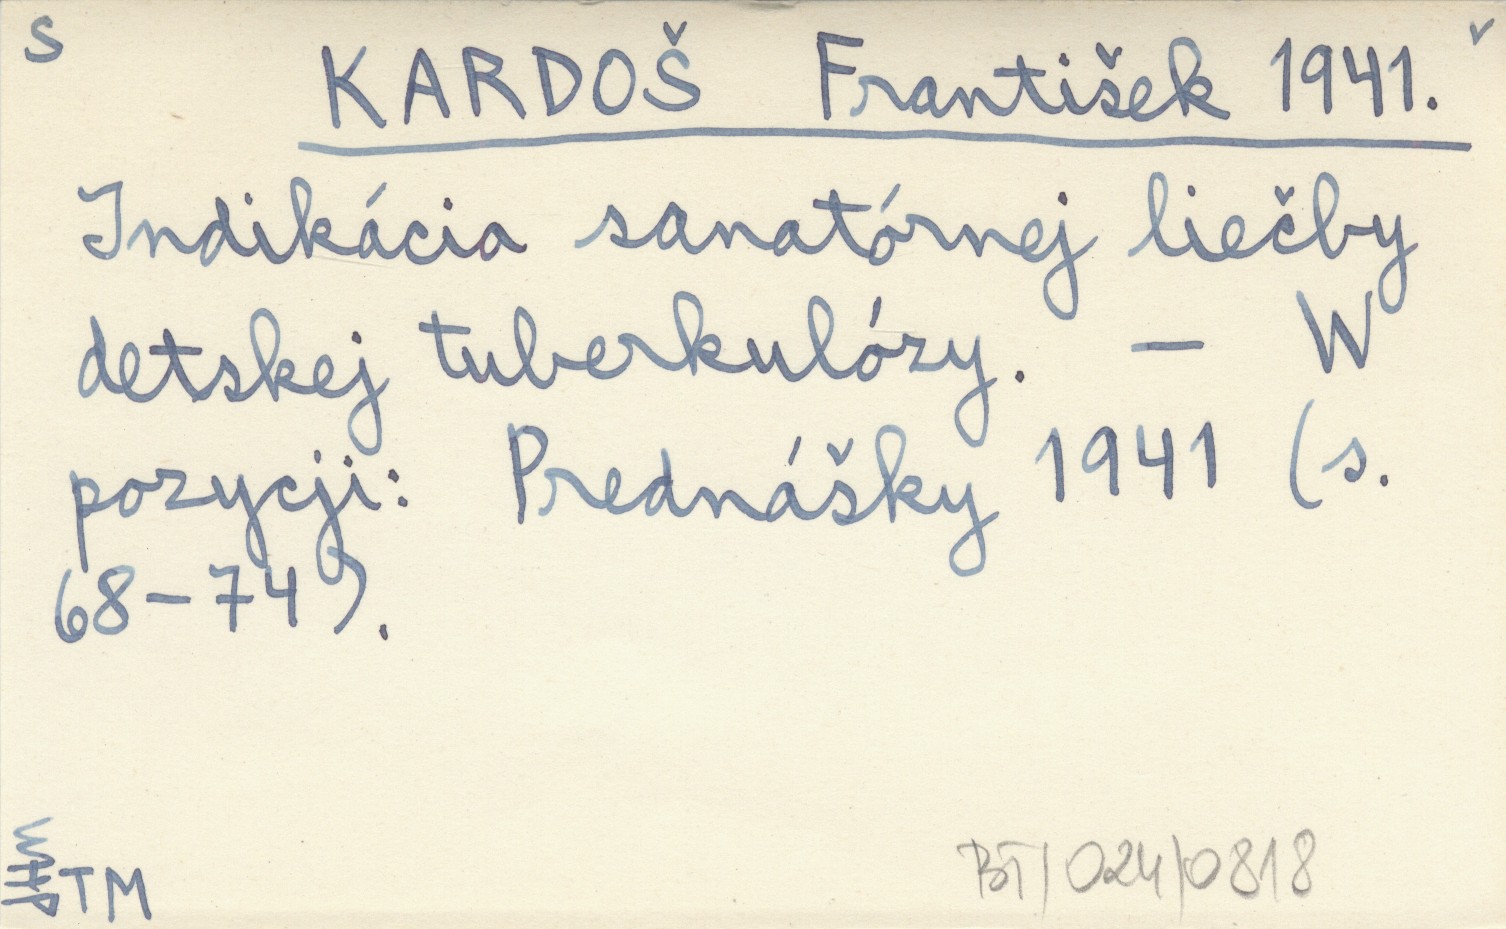 S
KARDOŠ František 1941. v
Indikácia sanatórnej liečby
detskej tuberkulózy. — W
pozycji: Prednášky 1941 (s.
68-74).
TM
BT/024/0818